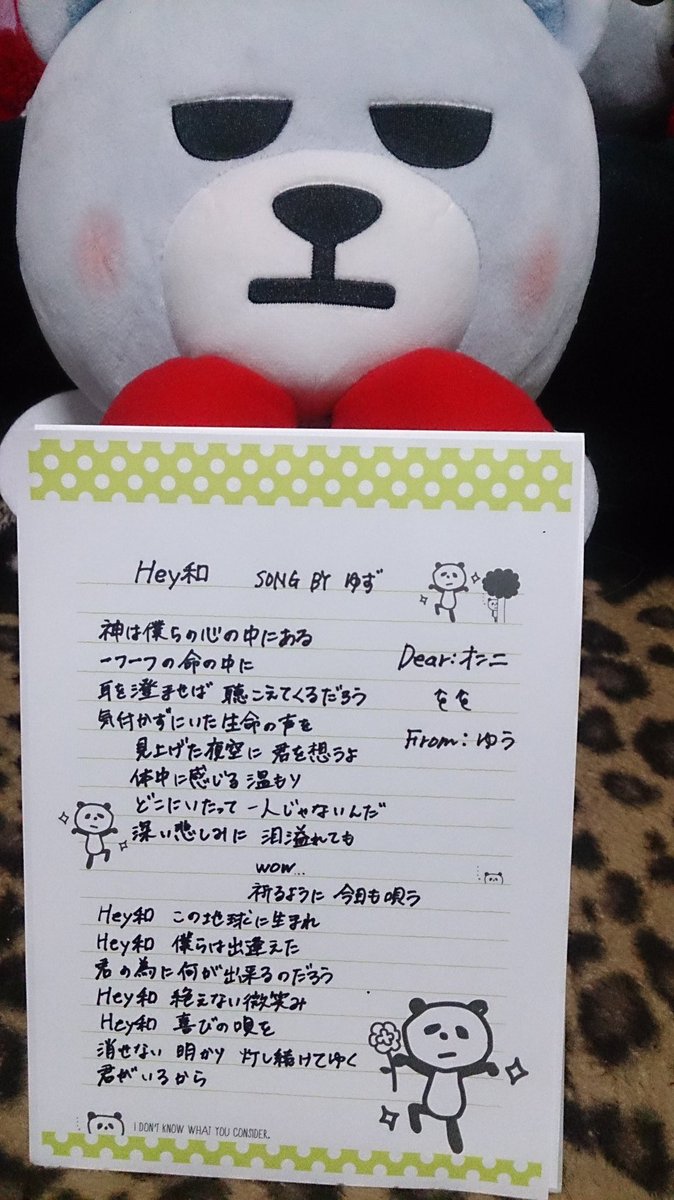 Hey和 SONG BY ゆず
神は僕らの心の中にある
一つ一つの命の中に
Dear:オンニ
耳を澄ませば 聴こえてくるだろう
をを
気付かずにいた生命の声を
From:ゆう
見上げた夜空に 君を想うよ
体中に感じる温もり
どこにいたって 一人じゃないんだ
深い悲しみに 泪溢れても
wow...
祈るように 今日も唄う
Hey和 この地球に生まれ
Hey和 僕らは出逢えた
君の為に何が出来るのだろう
Hey和 絶えない微笑み
Hey和 喜びの唄を
消せない 明かり 灯し続けてゆく
君がいるから
I DON'T KNOW WHAT YOU CONSIDER.